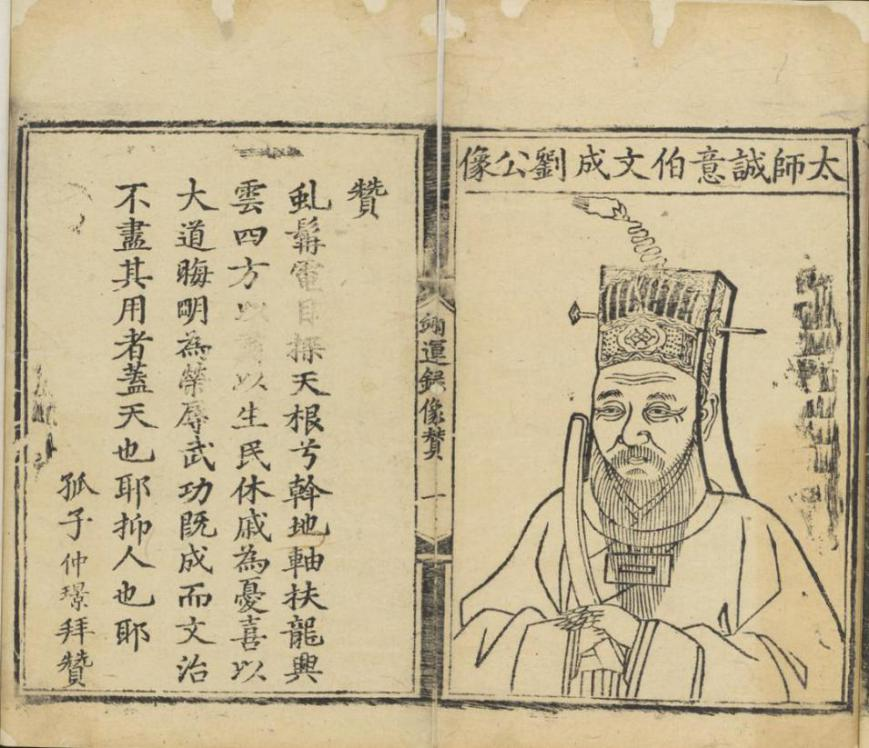 太師誠意伯文成劉公像
翊運錄像贊 一
贊
虬髯電目探天根兮斡地軸扶龍興
雲四方以以生民休戚為憂喜以
大道晦明為榮辱武功既成而文治
不盡其用者蓋天也耶抑人也耶
孤子仲璟拜贊